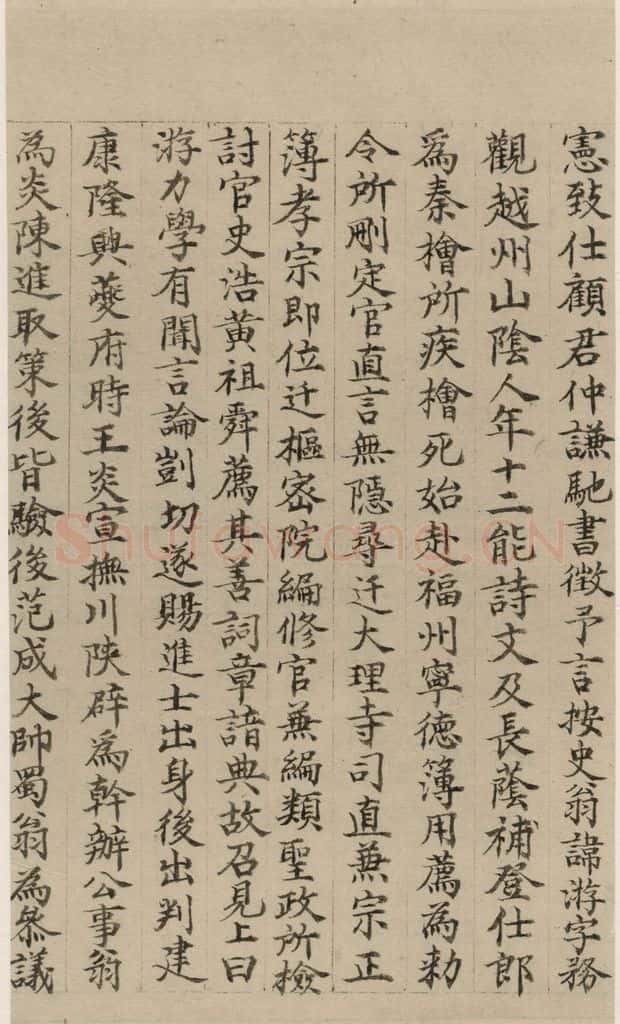 憲致仕顧君仲謙馳書徵予言按史翁諱游字務
觀越州山陰人年十二能詩文及長蔭補登仕郎
爲秦檜所疾檜死始赴福州寧德簿用薦為勑
令所刪定官直言無隱尋迁大理寺司直兼宗正
簿孝宗即位迁樞宻院編修官兼編類聖政所檢
討官史浩黄祖舜薦其善詞章諳典故召見上曰
游力學有聞言論剴切遂賜進士出身後出判建
康隆興夔府時王炎宣撫川陜辟為幹辦公事翁
為炎陳進取策後皆驗後范成大帥蜀翁為叅議
Shufawang.CN